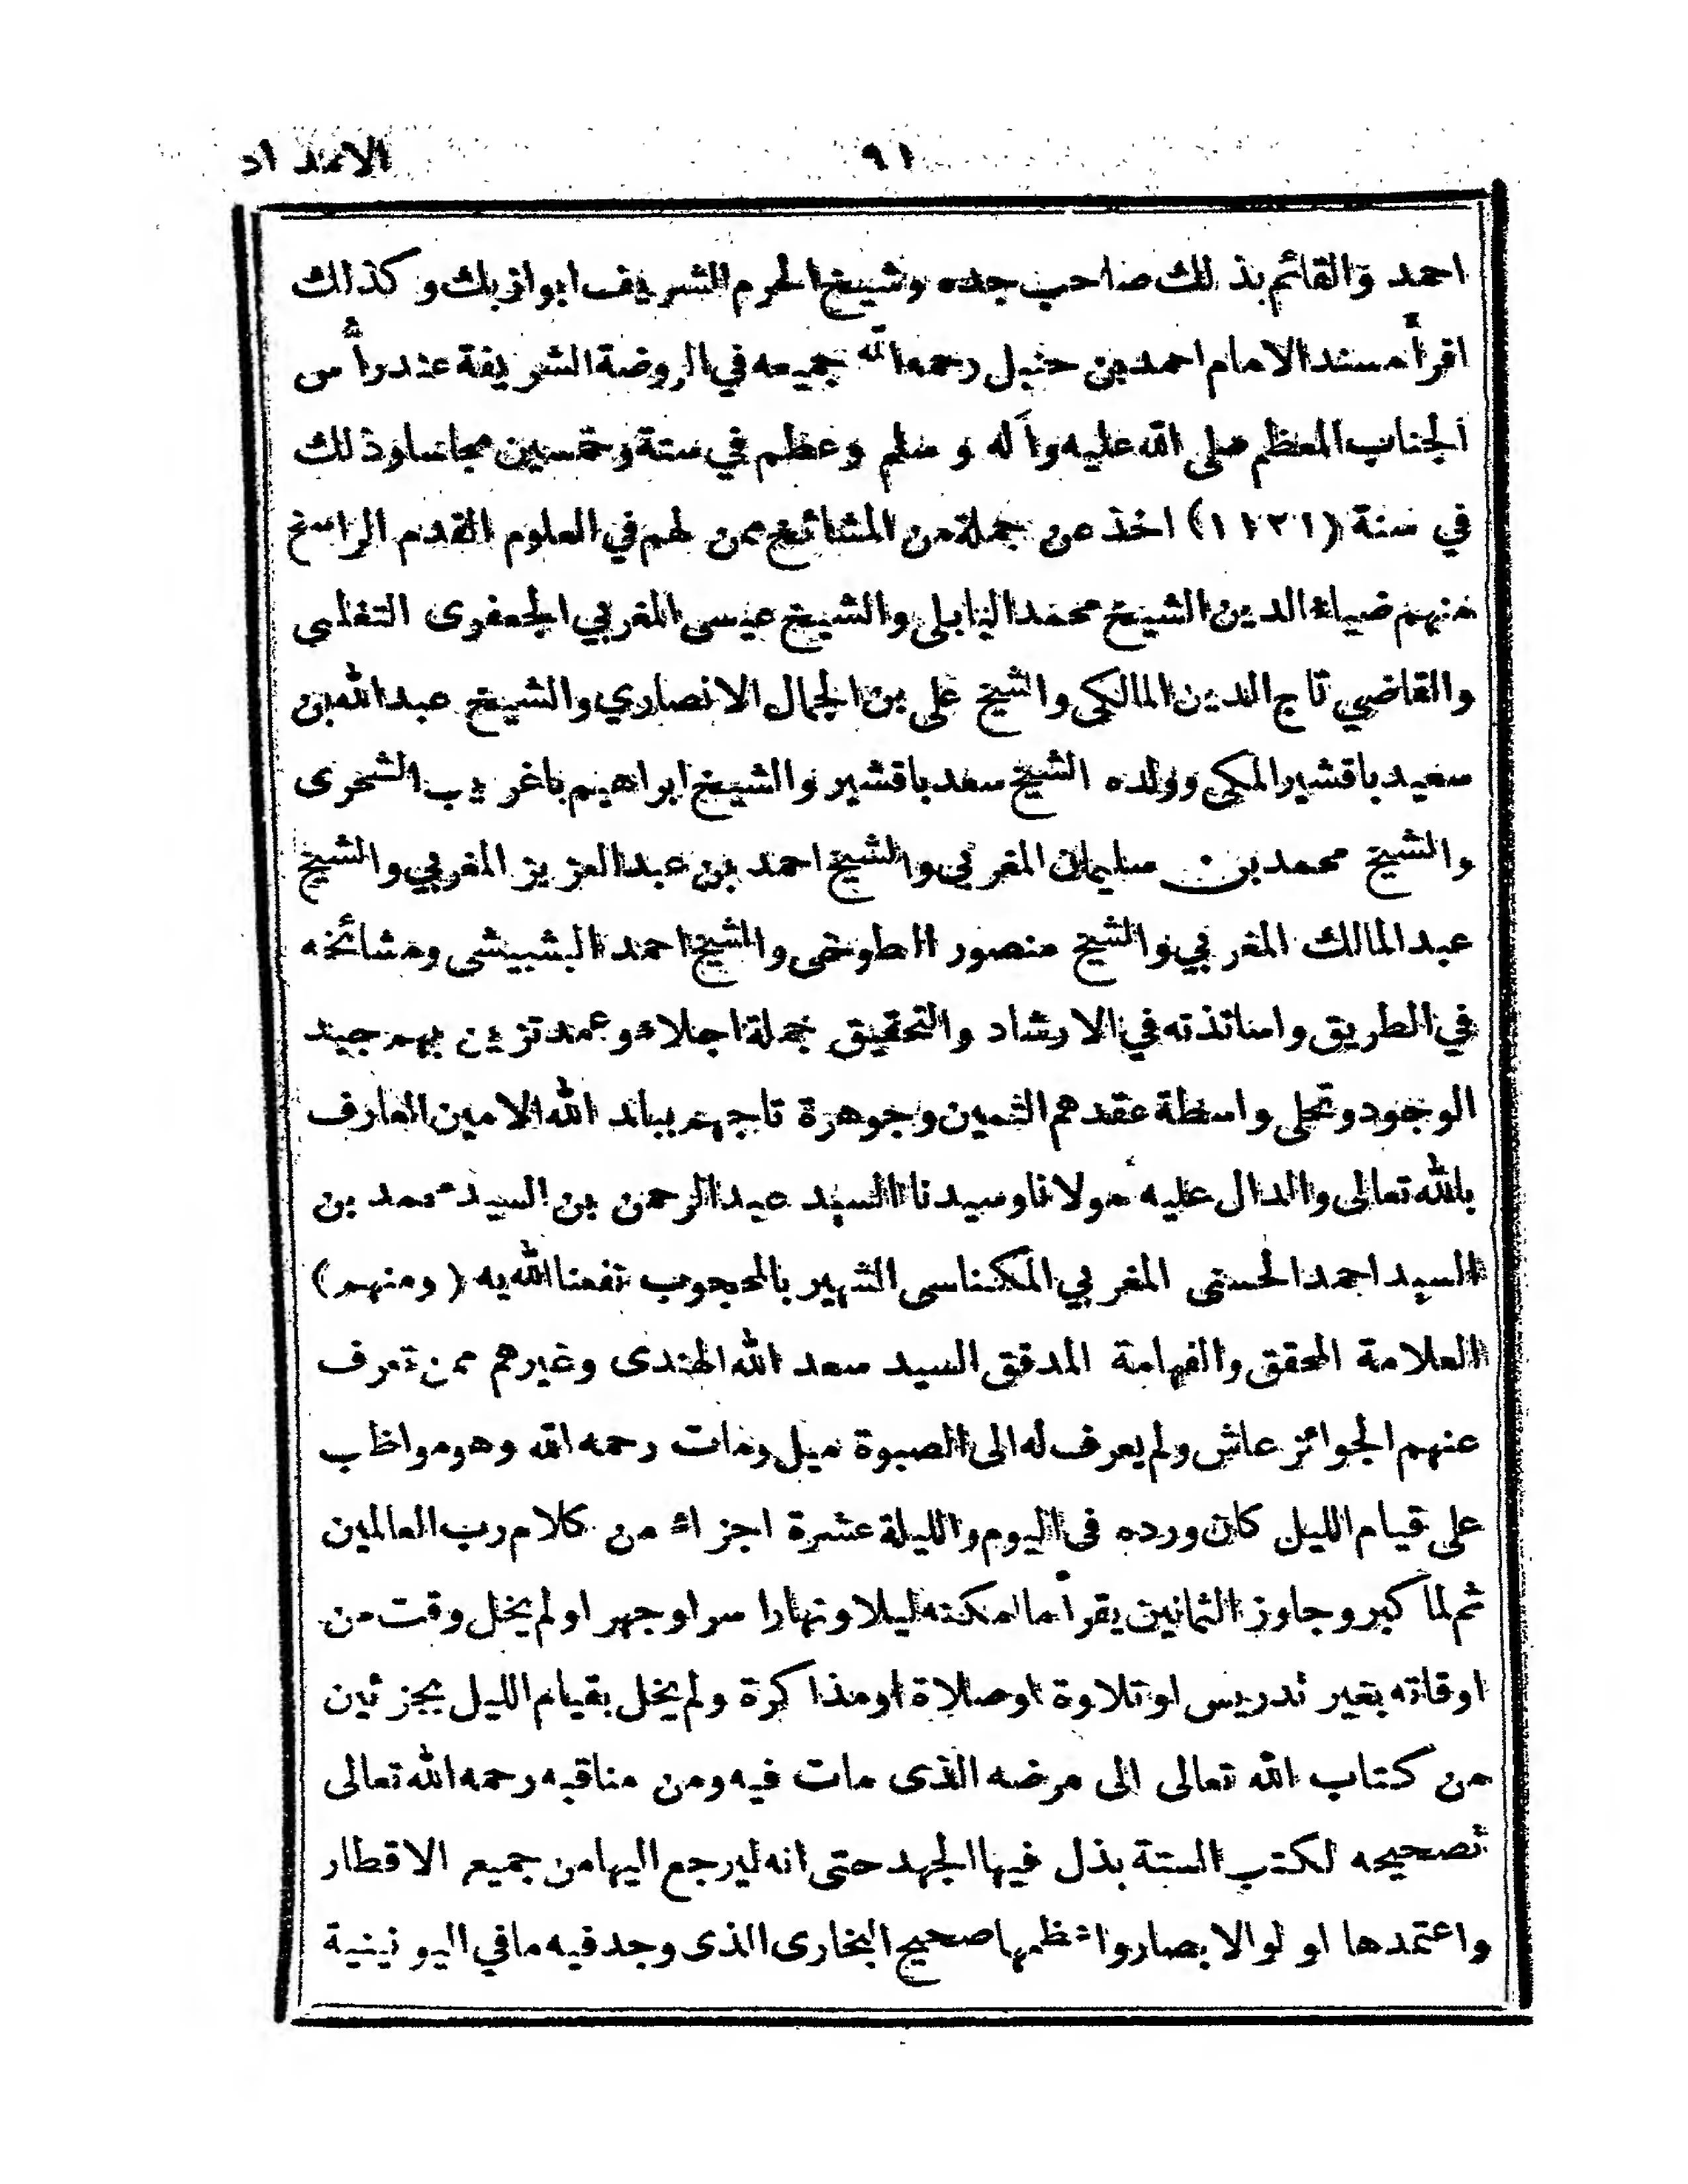 ٩١ الامداد
احمد والقائم بذلك صاحب جده وشيخ الحرم الشريف ابوازبك وكذلك
اقرأ مسند الامام احمد بن حنبل رحمه الله جميعه في الروضة الشريفة عند رأس
الجناب المعظم صلى الله عليه وآله و سلم وعظم في ستة وخمسين مجلسا وذلك
في سنة (١١٢١) اخذ عن جملة من المشائخ ممن لهم في العلوم القدم الراسخ
منهم ضياء الدين الشيخ محمد البابلى والشيخ عيسى المغربي الجعفرى الثعلبى
والقاضي تاج الدين المالكى والشيخ على بن الجمال الانصاري والشيخ عبدالله بن
سعيد باقشير المكى وولده الشيخ سعد باقشير والشيخ ابراهيم باغريب الشحرى
والشيخ محمد بن سليمان المغربي والشيخ احمد بن عبدالعزيز المغربي والشيخ
عبدالمالك المغربي والشيخ منصور الطوخى والشيخ احمد البشبيشى ومشائخه
في الطريق واساتذته في الارشاد والتحقيق جملة اجلاء وعمد تزين بهم جيد
الوجود وتحلى واسطة عقدهم الثمين وجوهرة تاجهم ببلد الله الامين العارف
بالله تعالى والدال عليه مولانا وسيدنا السيد عبدالرحمن بن السيد محمد بن
السيد احمد الحسنى المغربي المكناسى الشهير بالمحجوب نفعنا الله به (ومنهم)
العلامة المحقق والفهامة المدقق السيد سعد الله الهندى وغيرهم ممن تعرف
عنهم الجوائز عاش ولم يعرف له الى الصبوة ميل ومات رحمه الله وهو مواظب
على قيام الليل كان ورده فى اليوم والليلة عشرة اجزاء من كلام رب العالمين
ثم لما كبر وجاوز الثمانين يقرأ ما امكنه ليلا ونهارا سرا وجهرا ولم يخل وقت من
اوقاته بغير تدريس او تلاوة او صلاة او مذاكرة ولم يخل بقيام الليل بجزئين
من كتاب الله تعالى الى مرضه الذى مات فيه ومن مناقبه رحمه الله تعالى
تصحيحه لكتب الستة بذل فيها الجهد حتى انه ليرجع اليها من جميع الاقطار
واعتمدها اولوالابصار واعظمها صحيح البخارى الذى وجد فيه ما في اليونينية